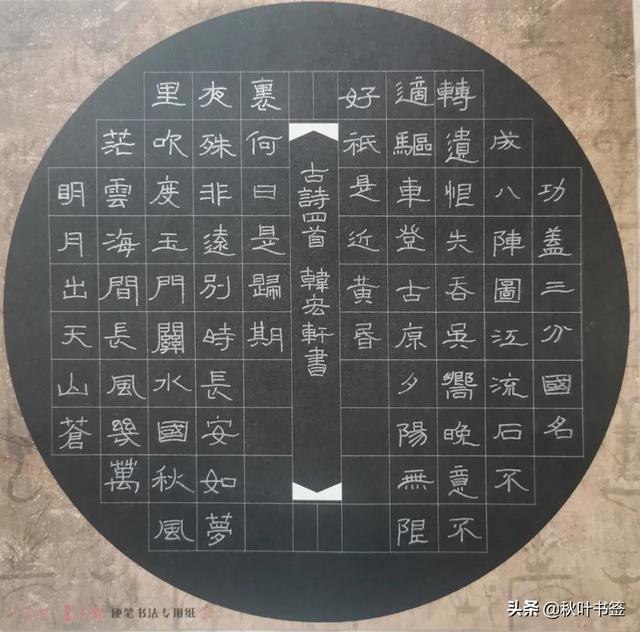 功蓋三分國名
成八陣圖江流石不
轉遺恨失吞吳嚮晚意不
適驅車登古原夕陽無限
好祇是近黃昏
古詩四首 韓宏軒書
明月出天山蒼
茫雲海間長風幾萬
里吹度玉門關水國秋風
夜殊非遠別時長安如夢
裏何日是歸期
硬笔书法专用纸
头条 @秋叶书签